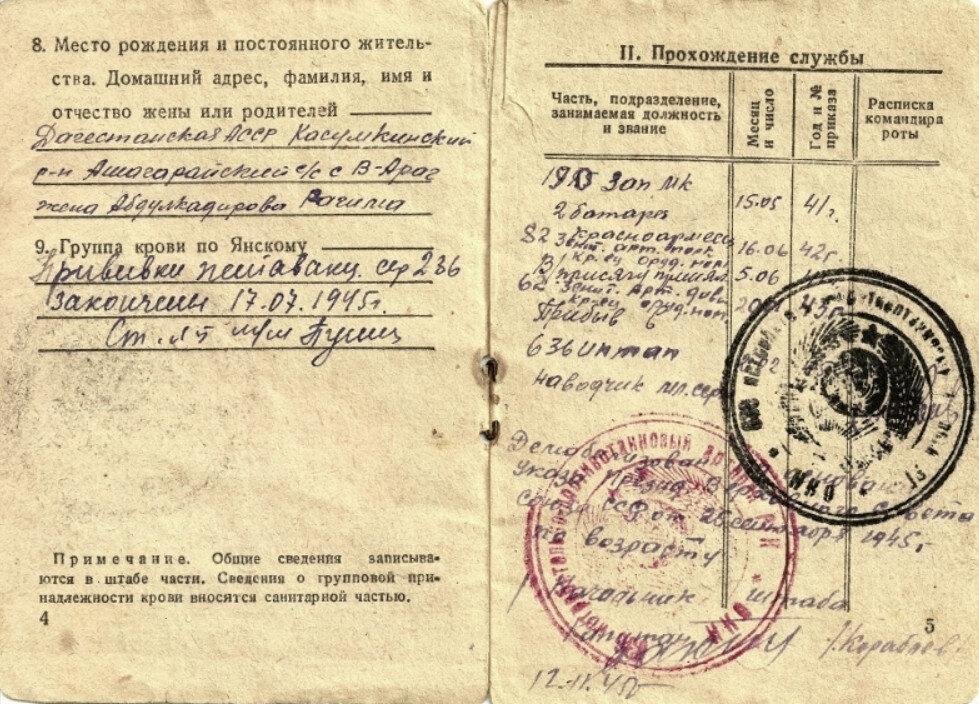 8. Место рождения и постоянного житель-
ства. Домашний адрес, фамилия, имя и
отчество жены или родителей
Дагестанская АССР Касумкинский
р-н Ашагарайский с/с с В-Араг
жена Абдулкадирова Рагима
9. Группа крови по Янскому
Прививки пентавакц. сер 236
закончены 17.07.1945г
Ст. л-т м/с
Примечание. Общие сведения записыва-
ются в штабе части. Сведения о групповой при-
надлежности крови вносятся санитарной частью.
4
II. Прохождение службы
Часть, подразделение,
занимаемая должность
и звание
Месяц
и число
Год и №
приказа
Расписка
командира
роты
Зап
2 батарея
15.05 41г.
82 Красноармеец
Зенит. арт.
16.06 42г.
В/присягу принял
5.06
62 Зенит. Арт. див
43г
Прибыв
636 иптап
наводчик
Демобилизован
Указа Презид. Верховного Совета
Союза ССР от 25 сентября 1945г
по возрасту
Начальник штаба
Капитан /Кораблев
12.11.45
5